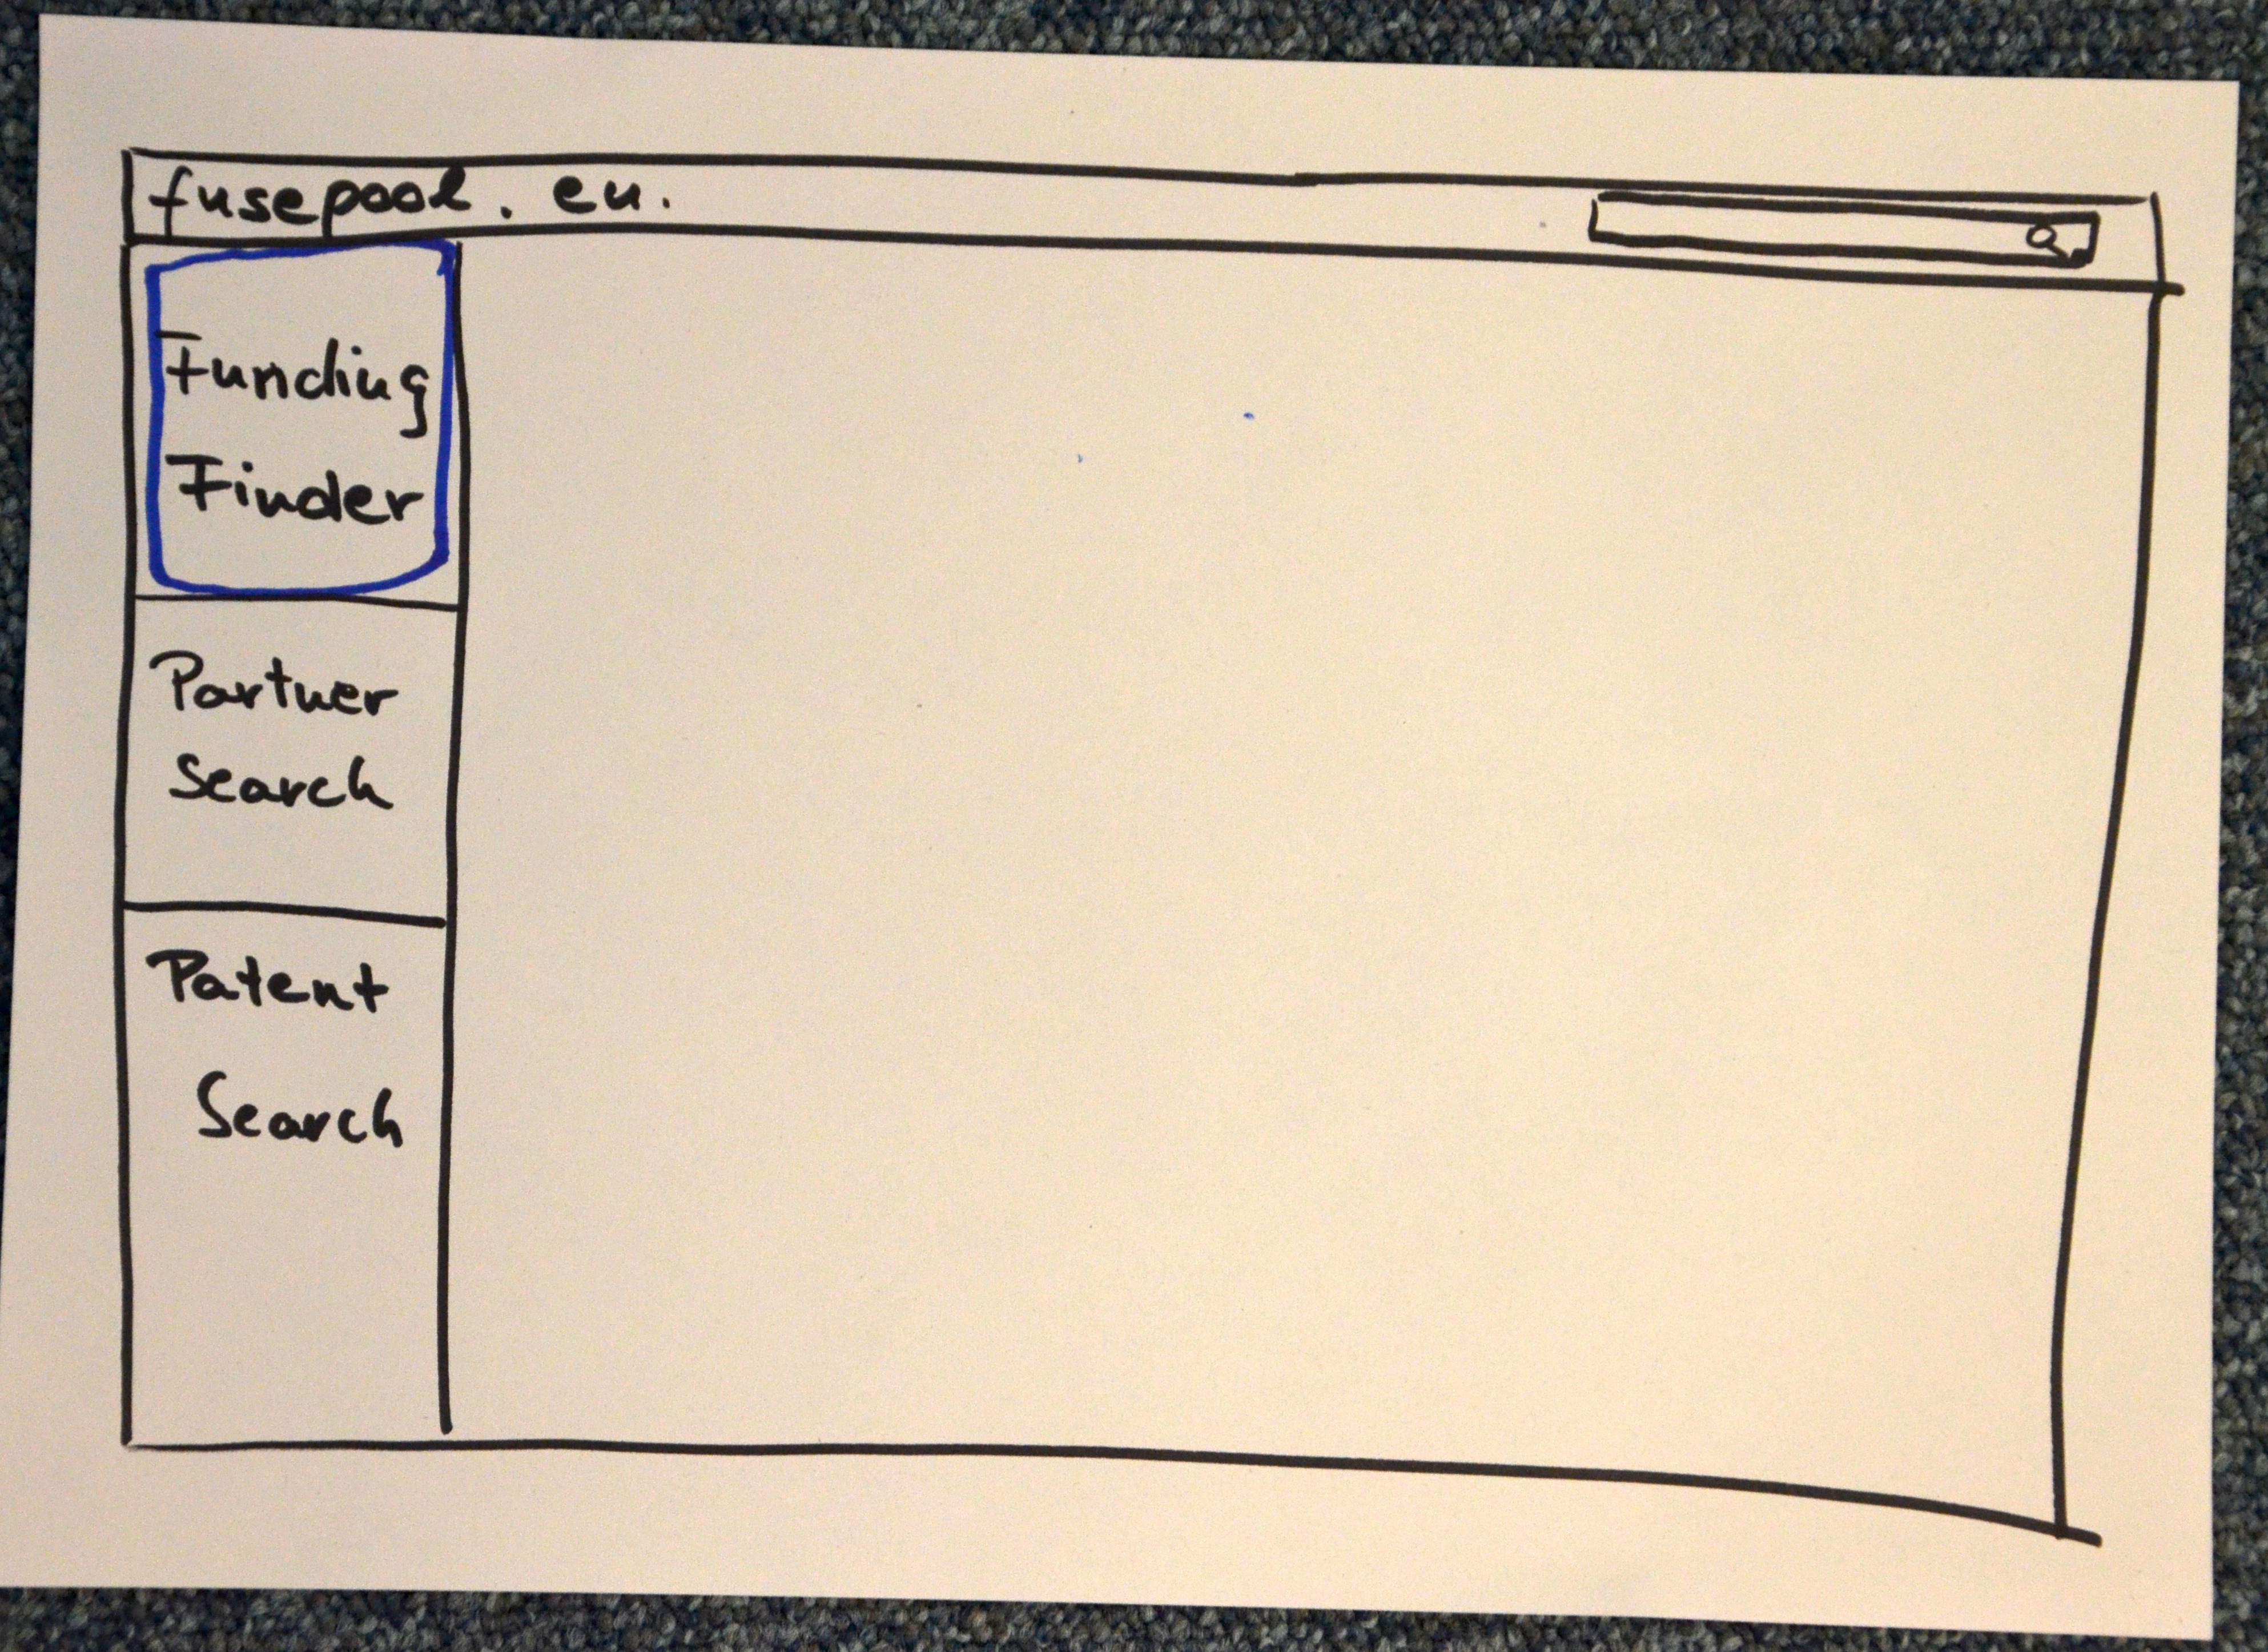 fusepool.eu.
Funding
Finder
Partner
Search
Patent
Search